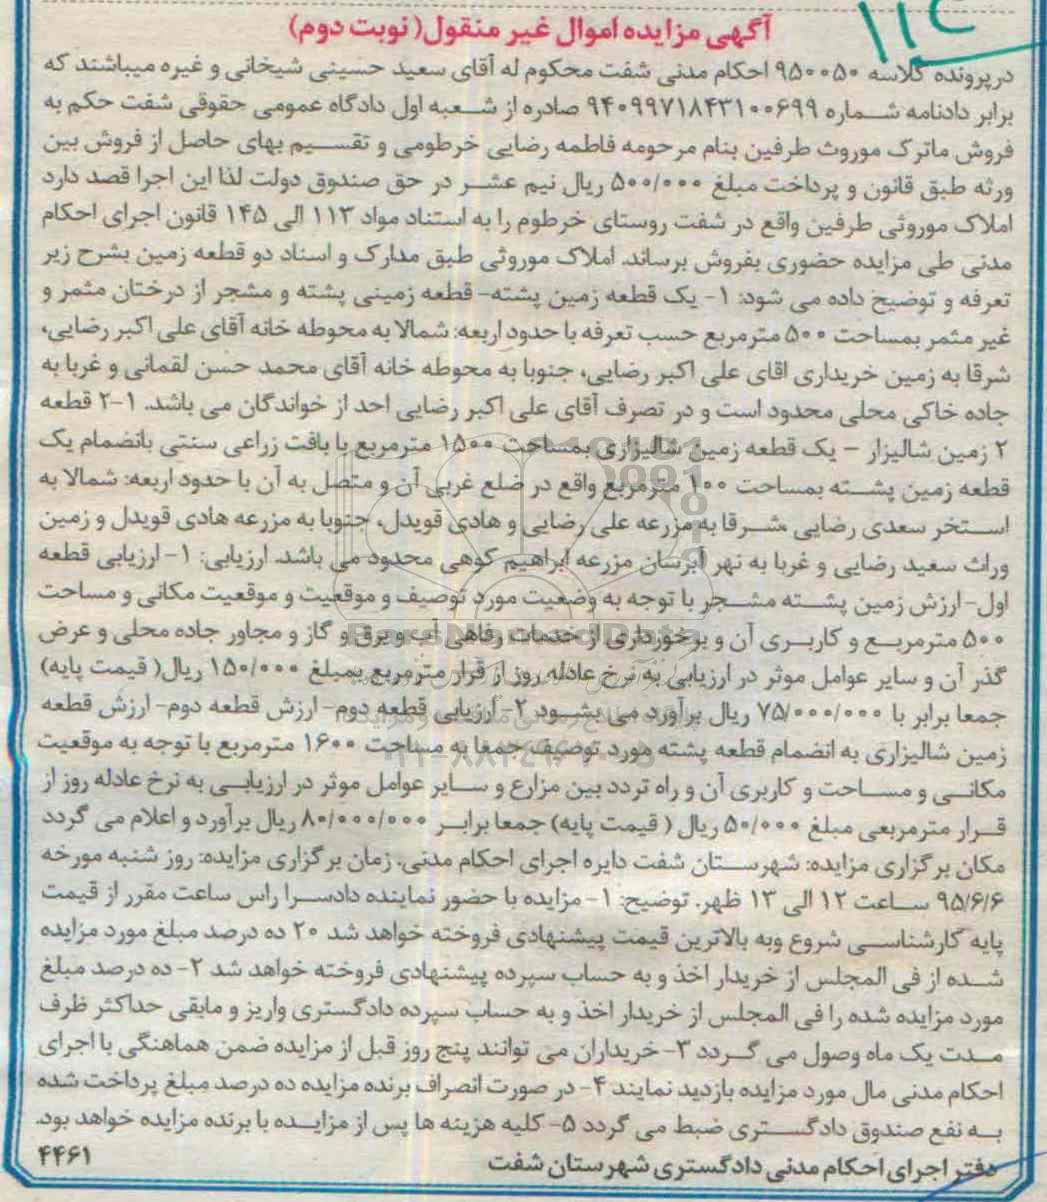 ۱۱۴
آگهی مزایده اموال غیر منقول( نوبت دوم)
درپرونده کلاسه ۹۵۰۰۵۰ احکام مدنی شفت محکوم له آقای سعید حسینی شیخانی و غیره میباشند که
برابر دادنامه شماره ۹۴۰۹۹۷۱۸۴۳۱۰۰۶۹۹ صادره از شعبه اول دادگاه عمومی حقوقی شفت حکم به
فروش ماترک موروث طرفین بنام مرحومه فاطمه رضایی خرطومی و تقسیم بهای حاصل از فروش بین
ورثه طبق قانون و پرداخت مبلغ ۵۰۰/۰۰۰ ریال نیم عشر در حق صندوق دولت لذا این اجرا قصد دارد
املاک موروثی طرفین واقع در شفت روستای خرطوم را به استناد مواد ۱۱۳ الی ۱۴۵ قانون اجرای احکام
مدنی طی مزایده حضوری بفروش برساند. املاک موروثی طبق مدارک و اسناد دو قطعه زمین بشرح زیر
تعرفه و توضیح داده می شود: ۱- یک قطعه زمین پشته- قطعه زمینی پشته و مشجر از درختان مثمر و
غیر مثمر بمساحت ۵۰۰ مترمربع حسب تعرفه با حدود اربعه: شمالا به محوطه خانه آقای علی اکبر رضایی،
شرقا به زمین خریداری اقای علی اکبر رضایی، جنوبا به محوطه خانه آقای محمد حسن لقمانی و غربا به
جاده خاکی محلی محدود است و در تصرف آقای علی اکبر رضایی احد از خواندگان می باشد. ۱-۲ قطعه
۲ زمین شالیزار - یک قطعه زمین شالیزاری بمساحت ۱۵۰۰ مترمربع با بافت زراعی سنتی بانضمام یک
قطعه زمین پشته بمساحت ۱۰۰ مترمربع واقع در ضلع غربی آن و متصل به آن با حدود اربعه: شمالا به
استخر سعدی رضایی مشرقا به مزرعه علی رضایی و هادی قویدل، جنوبا به مزرعه هادی قویدل و زمین
وراث سعید رضایی و غربا به نهر آبرسان مزرعه ابراهیم کوهی محدود می باشد. ارزیابی: ۱- ارزیابی قطعه
اول- ارزش زمین پشته مشجر با توجه به وضعیت مورد توصیف و موقعیت و موقعیت مکانی و مساحت
۵۰۰ مترمربع و کاربری آن و برخورداری از خدمات رفاهی آب و برق و گاز و مجاور جاده محلی و عرض
گذر آن و سایر عوامل موثر در ارزیابی به نرخ عادله روز از قرار مترمربع بمبلغ ۱۵۰/۰۰۰ ریال( قیمت پایه)
جمعا برابر با ۷۵/۰۰۰/۰۰۰ ریال برآورد می بشود ۲- ارزیابی قطعه دوم- ارزش قطعه دوم- ارزش قطعه
زمین شالیزاری به انضمام قطعه پشته مورد توصیف جمعا به مساحت ۱۶۰۰ مترمربع با توجه به موقعیت
مکانی و مساحت و کاربری آن و راه تردد بین مزارع و سایر عوامل موثر در ارزیابی به نرخ عادله روز از
قرار مترمربعی مبلغ ۵۰/۰۰۰ ریال ( قیمت پایه) جمعا برابر ۸۰/۰۰۰/۰۰۰ ریال برآورد و اعلام می گردد
مکان برگزاری مزایده: شهرستان شفت دایره اجرای احکام مدنی. زمان برگزاری مزایده: روز شنبه مورخه
۹۵/۶/۶ ساعت ۱۲ الی ۱۳ ظهر. توضیح: ۱- مزایده با حضور نماینده دادسرا راس ساعت مقرر از قیمت
پایه کارشناسی شروع وبه بالاترین قیمت پیشنهادی فروخته خواهد شد ۲۰ ده درصد مبلغ مورد مزایده
شده از فی المجلس از خریدار اخذ و به حساب سپرده پیشنهادی فروخته خواهد شد ۲- ده درصد مبلغ
مورد مزایده شده را فی المجلس از خریدار اخذ و به حساب سپرده دادگستری واریز و مابقی حداکثر ظرف
مدت یک ماه وصول می گردد ۳- خریداران می توانند پنج روز قبل از مزایده ضمن هماهنگی با اجرای
احکام مدنی مال مورد مزایده بازدید نمایند ۴- در صورت انصراف برنده مزایده ده درصد مبلغ پرداخت شده
به نفع صندوق دادگستری ضبط می گردد ۵- کلیه هزینه ها پس از مزایده با برنده مزایده خواهد بود.
دفتر اجرای احکام مدنی دادگستری شهرستان شفت
۴۴۶۱